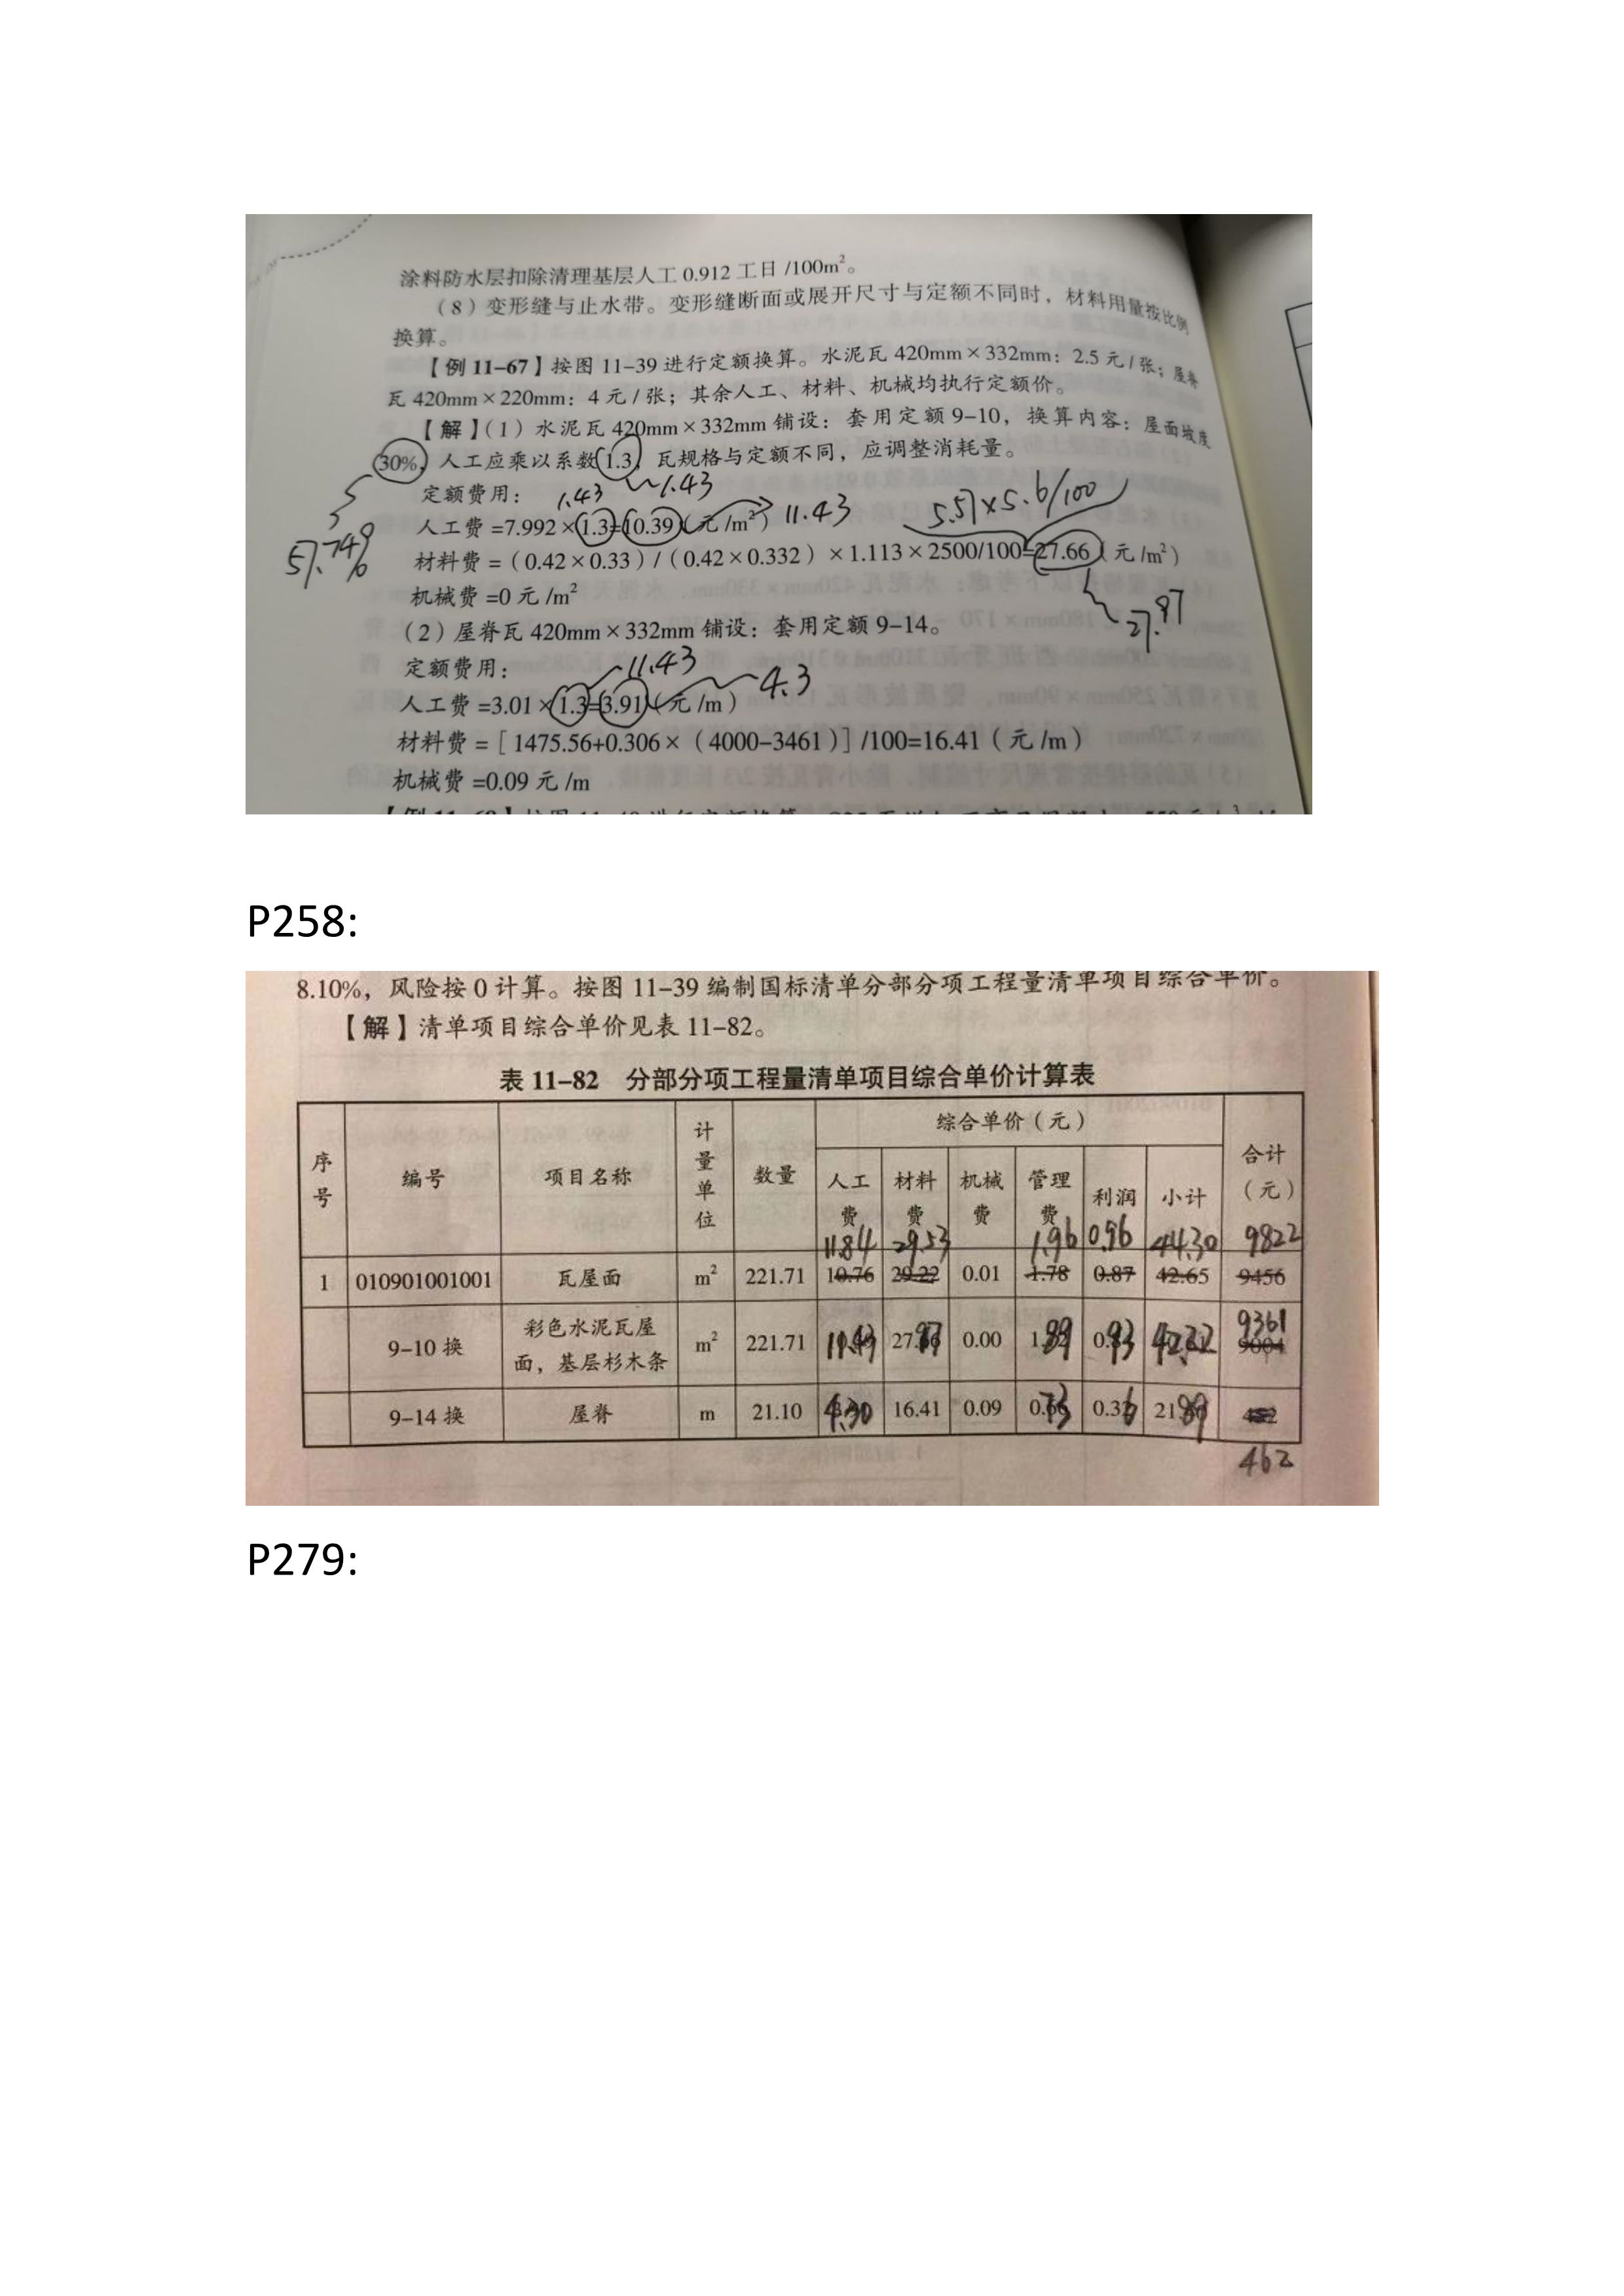 涂料防水层扣除清理基层人工0.912工日/100m²。
（8）变形缝与止水带。变形缝断面或展开尺寸与定额不同时，材料用量按比例
换算。
【例11-67】按图11-39进行定额换算。水泥瓦420mm×332mm：2.5元/张；屋脊
瓦420mm×220mm：4元/张；其余人工、材料、机械均执行定额价。
【解】（1）水泥瓦420mm×332mm铺设：套用定额9-10，换算内容：屋面坡度
30%，人工应乘以系数1.3，瓦规格与定额不同，应调整消耗量。
定额费用： 1.43 1.43
人工费=7.992×1.3=10.39（元/m²） 11.43 5.57×5.6/100
51.74%
材料费=（0.42×0.33）/（0.42×0.332）×1.113×2500/100=27.66（元/m²）
机械费=0元/m² 27.87
（2）屋脊瓦420mm×332mm铺设：套用定额9-14。
定额费用： 11.43
人工费=3.01×1.3=3.91（元/m） 4.3
材料费=［1475.56+0.306×（4000-3461）］/100=16.41（元/m）
机械费=0.09元/m
P258:
8.10%，风险按0计算。按图11-39编制国标清单分部分项工程量清单项目综合单价。
【解】清单项目综合单价见表11-82。
表11-82 分部分项工程量清单项目综合单价计算表
序号 编号 项目名称 计量单位 数量 综合单价（元） 合计（元）
人工费 材料费 机械费 管理费 利润 小计
11.84 29.53 1.96 0.96 44.30 9822
1 010901001001 瓦屋面 m² 221.71 10.76 29.22 0.01 1.78 0.87 42.65 9456
9361
9-10换 彩色水泥瓦屋面，基层杉木条 m² 221.71 11.43 27.87 0.00 1.89 0.93 9004
9-14换 屋脊 m 21.10 4.30 16.41 0.09 0.73 0.36 21.89 452
462
P279: